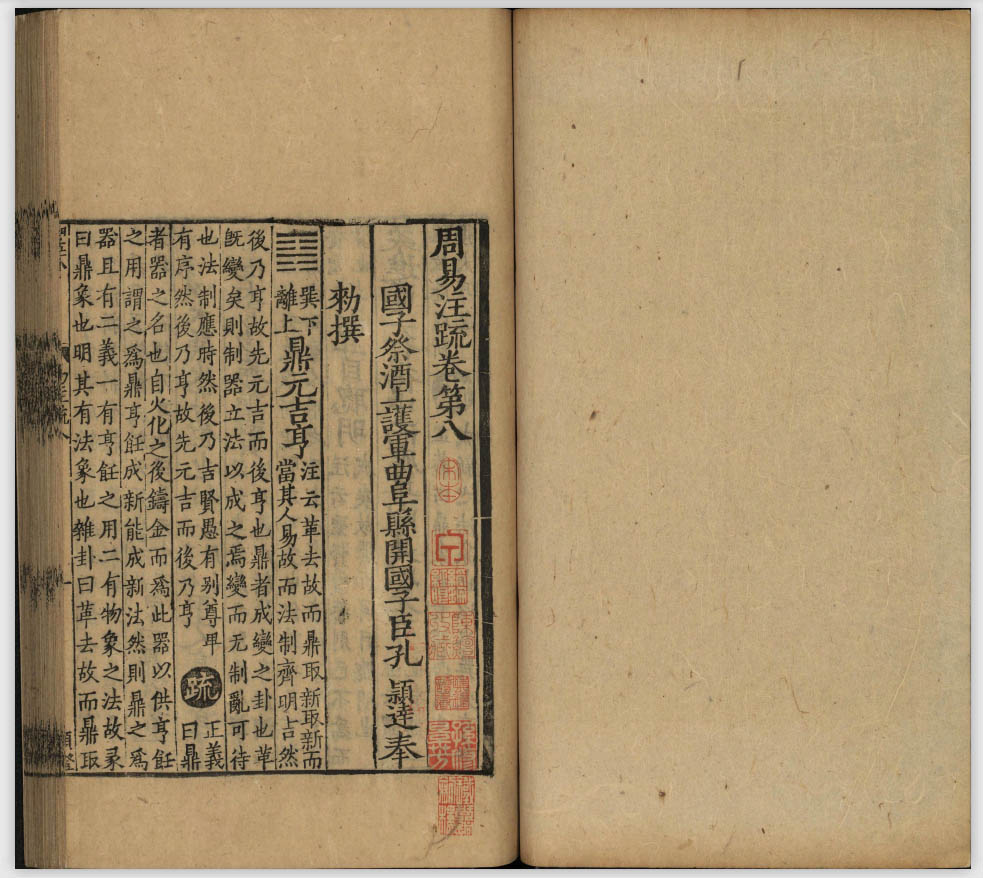 周易注疏卷第八
國子祭酒上護軍曲阜縣開國子臣孔 穎達奉
勑撰
䷱ 巽下
離上
鼎元吉亨
注云革去故而鼎取新取新而
當其人易故而法制齊明吉然
後乃亨故先元吉而後亨也鼎者成變之卦也革
旣變矣則制器立法以成之焉變而无制亂可待
也法制應時然後乃吉賢愚有别尊卑
有序然後乃亨故先元吉而後乃亨
疏
正義
曰鼎
者器之名也自火化之後鑄金而爲此器以供亨飪
之用謂之爲鼎亨飪成新能成新法然則鼎之爲
器且有二義一有亨飪之用二有物象之法故彖
曰鼎象也明其有法象也雜卦曰革去故而鼎取
宋本